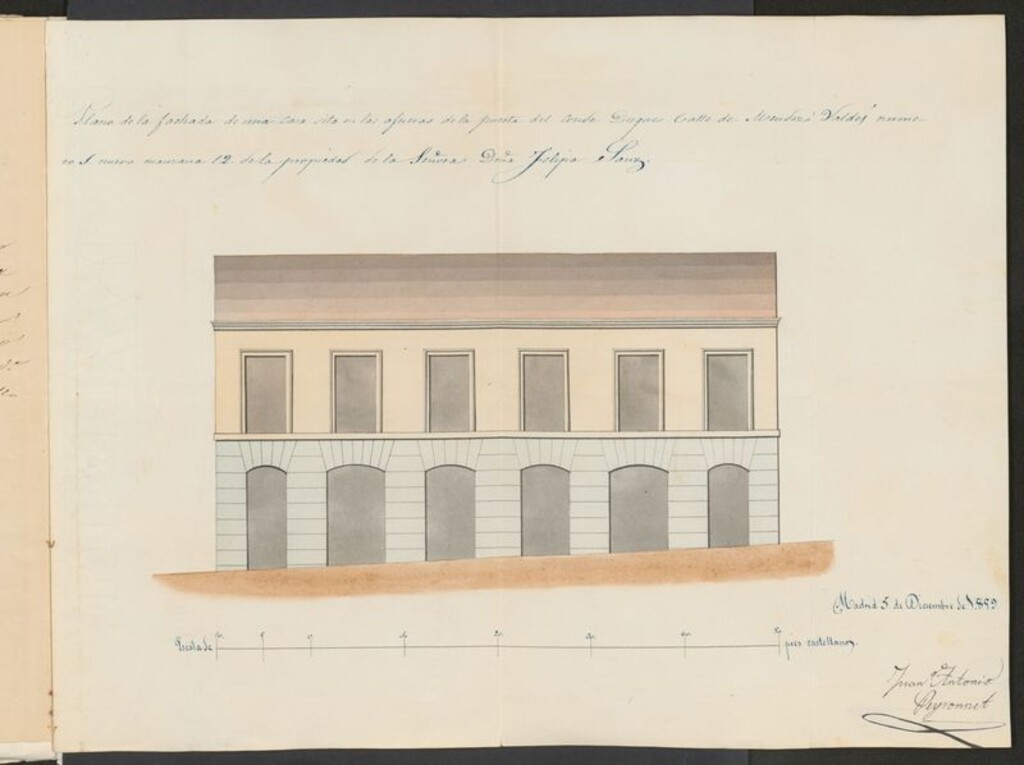 Plano de la fachada de una casa sita en las afueras de la puerta del Conde Duque Calle de Mendez Valdes nume-
ro 1 nuevo manzana 12 de la propiedad de la Señora Doña Felipa Sanz.
Madrid 5 de Diciembre de 1859
Escala de pies castellanos.
Juan Antonio
Peyronnet